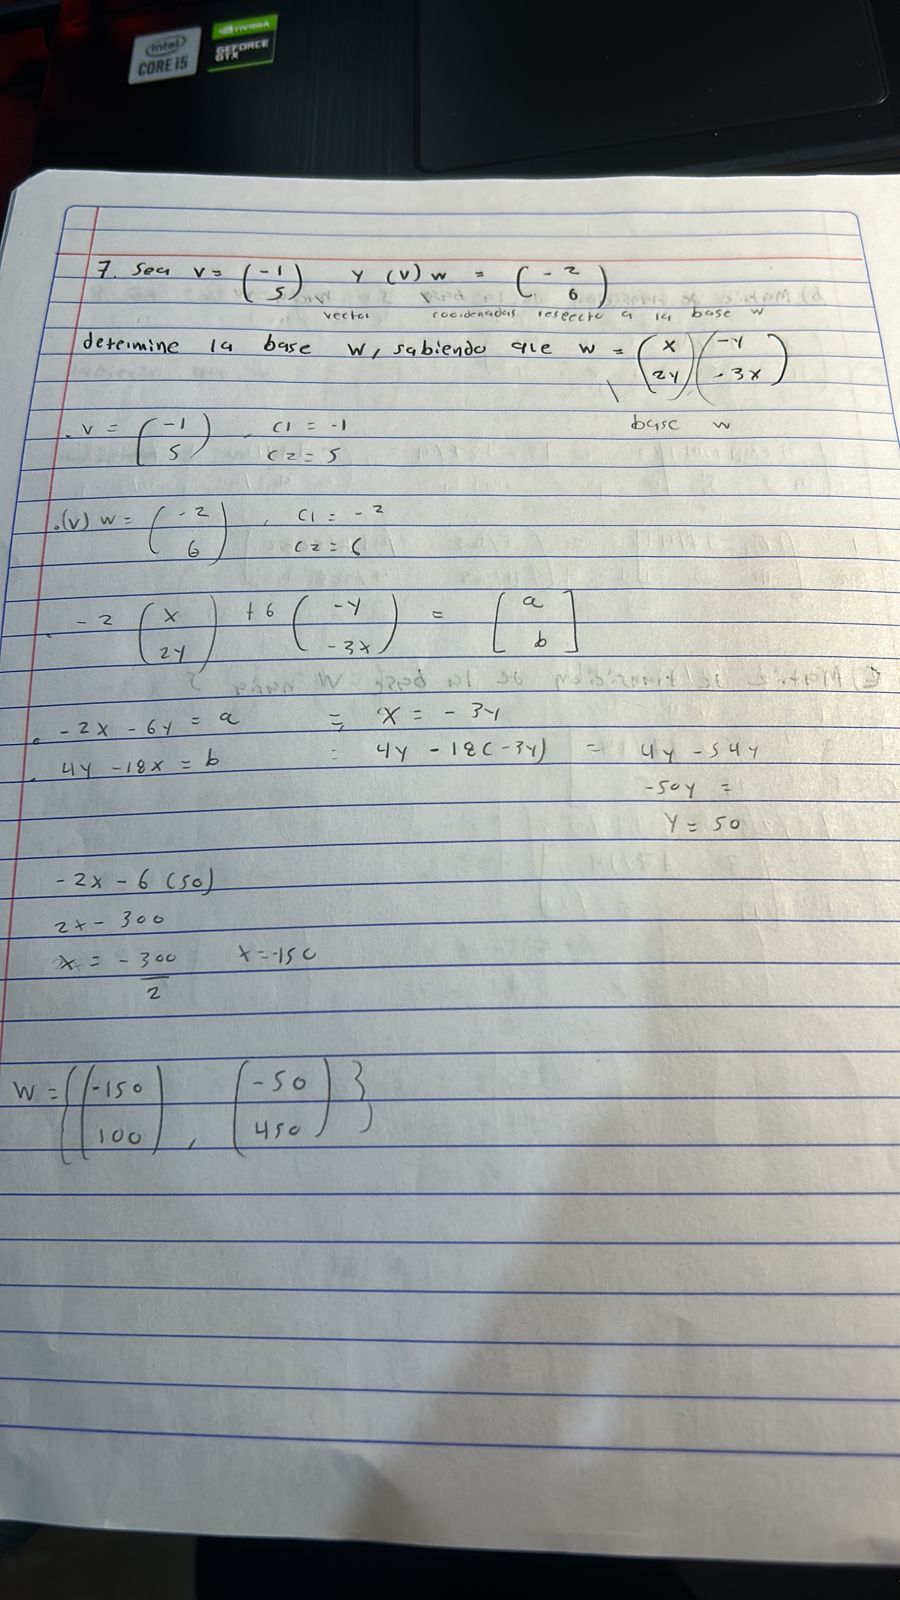 intel
CORE i5
NVIDIA
GEFORCE
GTX
7. Sea v = (-1 5) y (v) w = (-2 6)
vector cocidenadas respecto a la base w
determine la base w, sabiendo que w = (x 2y) (-y -3x)
base w
. v = (-1 5) , c1 = -1
c2 = 5
.(v) w = (-2 6) , c1 = -2
c2 = 6
. -2 (x 2y) +6 (-y -3x) = [a b]
. -2x - 6y = a = x = -3y
. 4y - 18x = b : 4y - 18(-3y) = 4y - 54y
-50y =
y = 50
-2x - 6 (50)
2x - 300
x = -300/2 x = -150
W = {(-150 100) , (-50 450)}